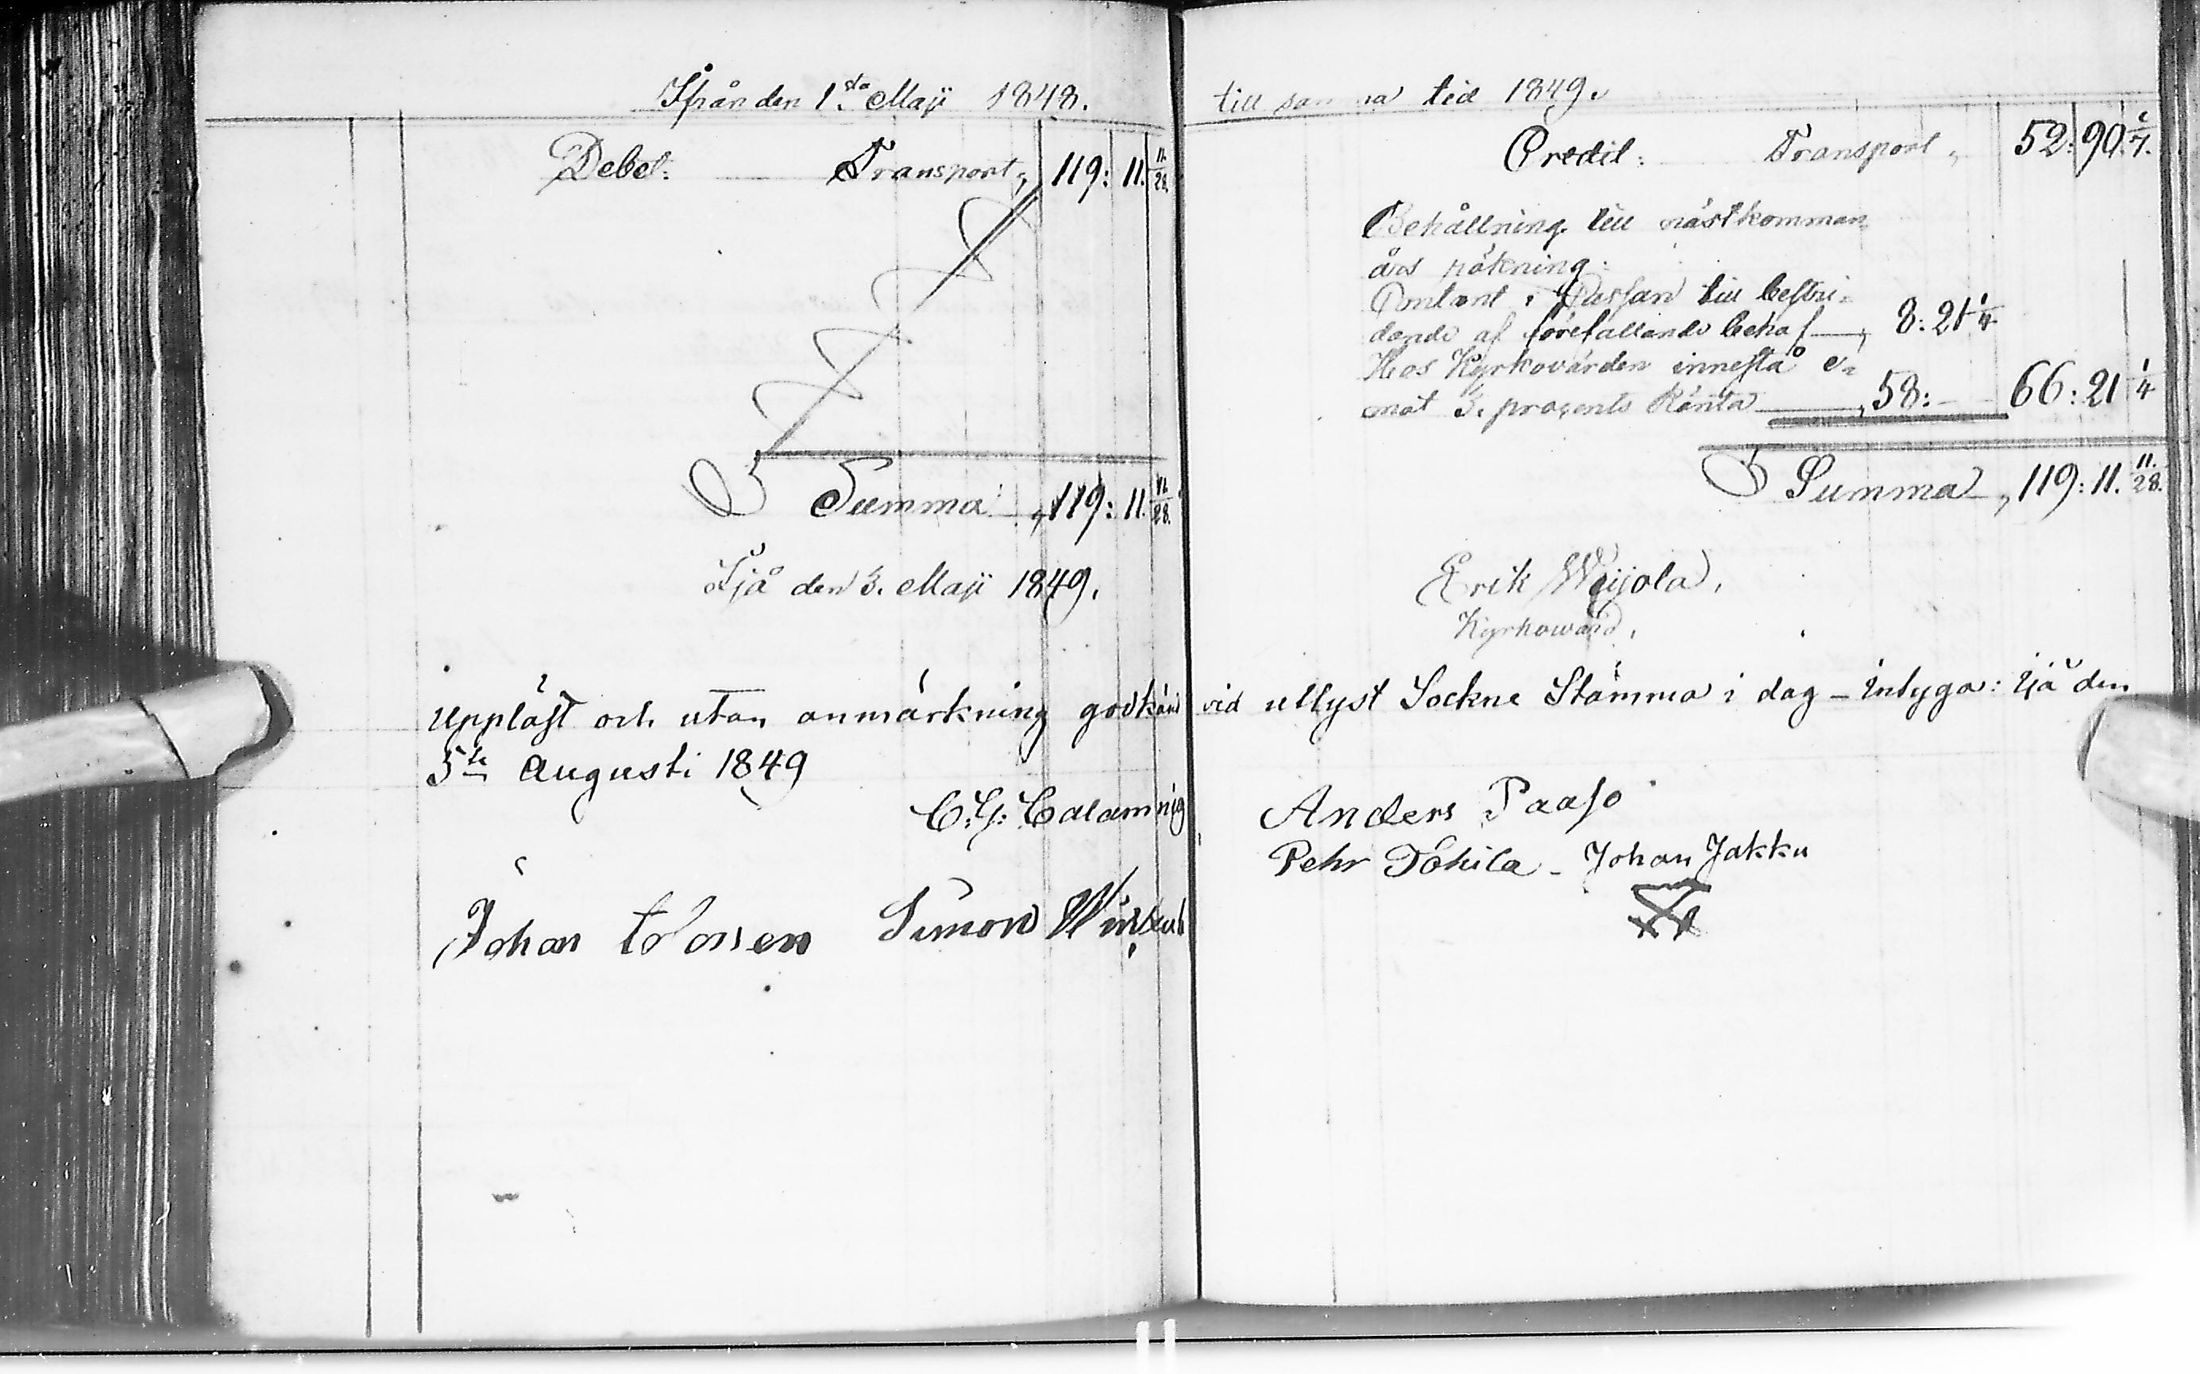 Ifrån den 1sta Maji 1848.
Debet: Transport, 119: 11. 11/28.
Summa, 119: 11. 11/28.
Ijå den 3. Maji 1849.
Uppläst och utan anmärkning godkänd vid utlyst Sockne Stämma i dag – intyga: Ijå den
5te Augusti 1849
C: G: Calamnius
Johan Simon
till samma tid 1849.
Credit: Transport, 52: 90. 1/7.
Behållning till nästkomman
års räkning:
Contant i Cassan till bestri-
dande af förefallande behof, 8: 21 1/4
Hos Kyrkovärden innestå e-
mot 5. procents Ränta, 58: — 66: 21 1/4
Summa, 119: 11. 11/28.
Erik Weijola,
Kyrkowärd.
Anders Paaso
Pehr Tohila - Johan Jakku